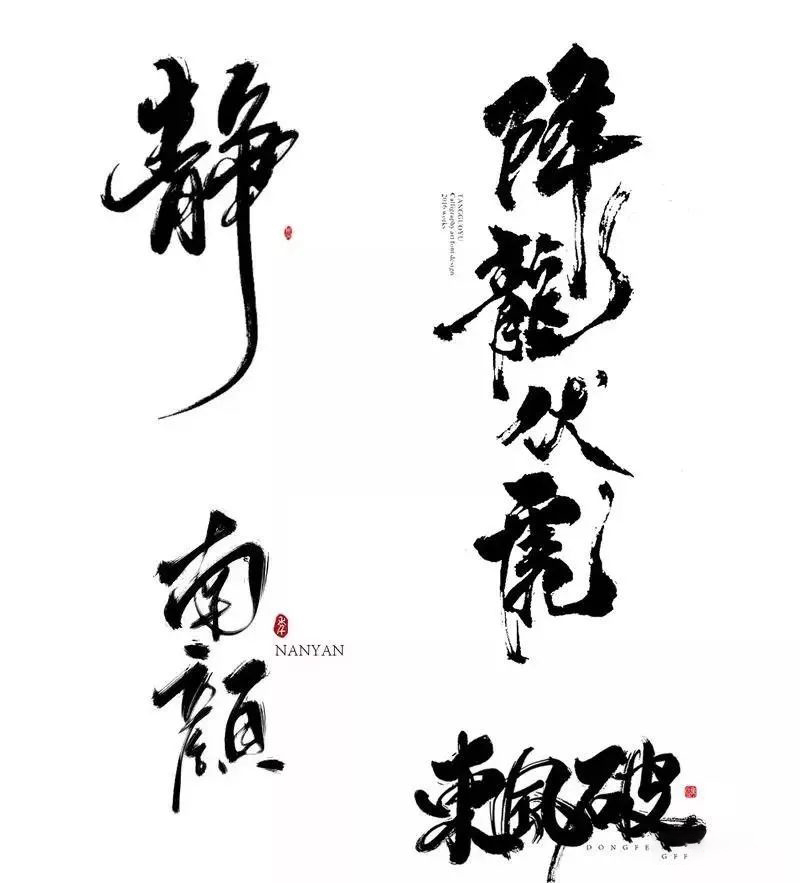 静
降龍伏虎
TANGGUOYU
Calligraphy art font design
2016 works
南顔
NANYAN
東風破
DONGFE
GFF